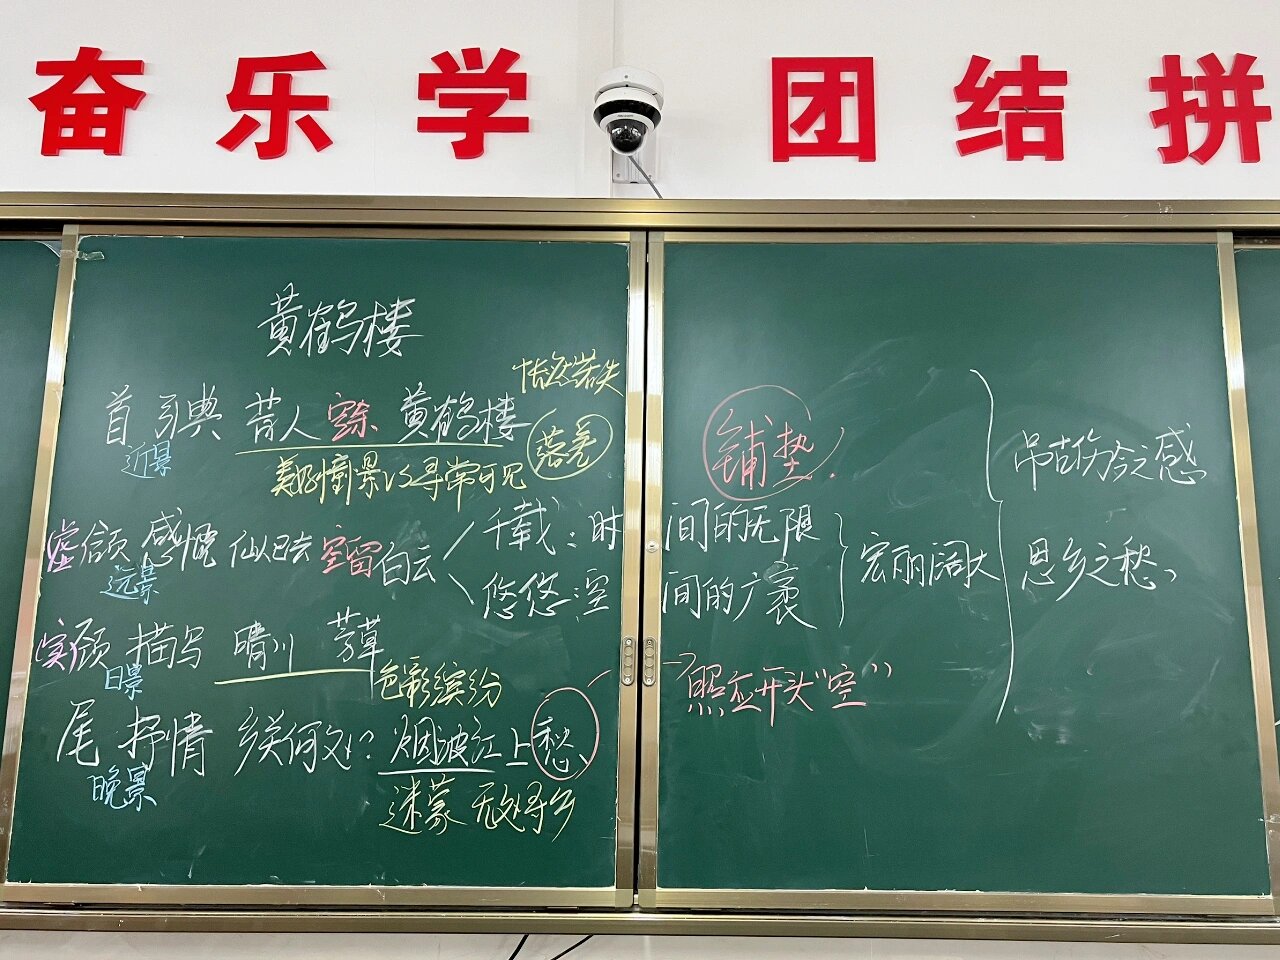 奋 乐 学 团 结 拼
黄鹤楼
怅然若失
首 引典 昔人 空余 黄鹤楼 落笔
近景
美好情景以寻常可见
铺垫.
虚 颔 感慨 仙人已去 空留 白云 千载:时间的无限
悠悠:空间的广袤
宏丽阔大
远景
吊古伤今之感
思乡之愁
实 颈 描写 晴川 芳草
日景
色彩缤纷
尾 抒情 乡关何处? 烟波江上 愁
→照应开头“空”
晚景
迷蒙 无处寻乡